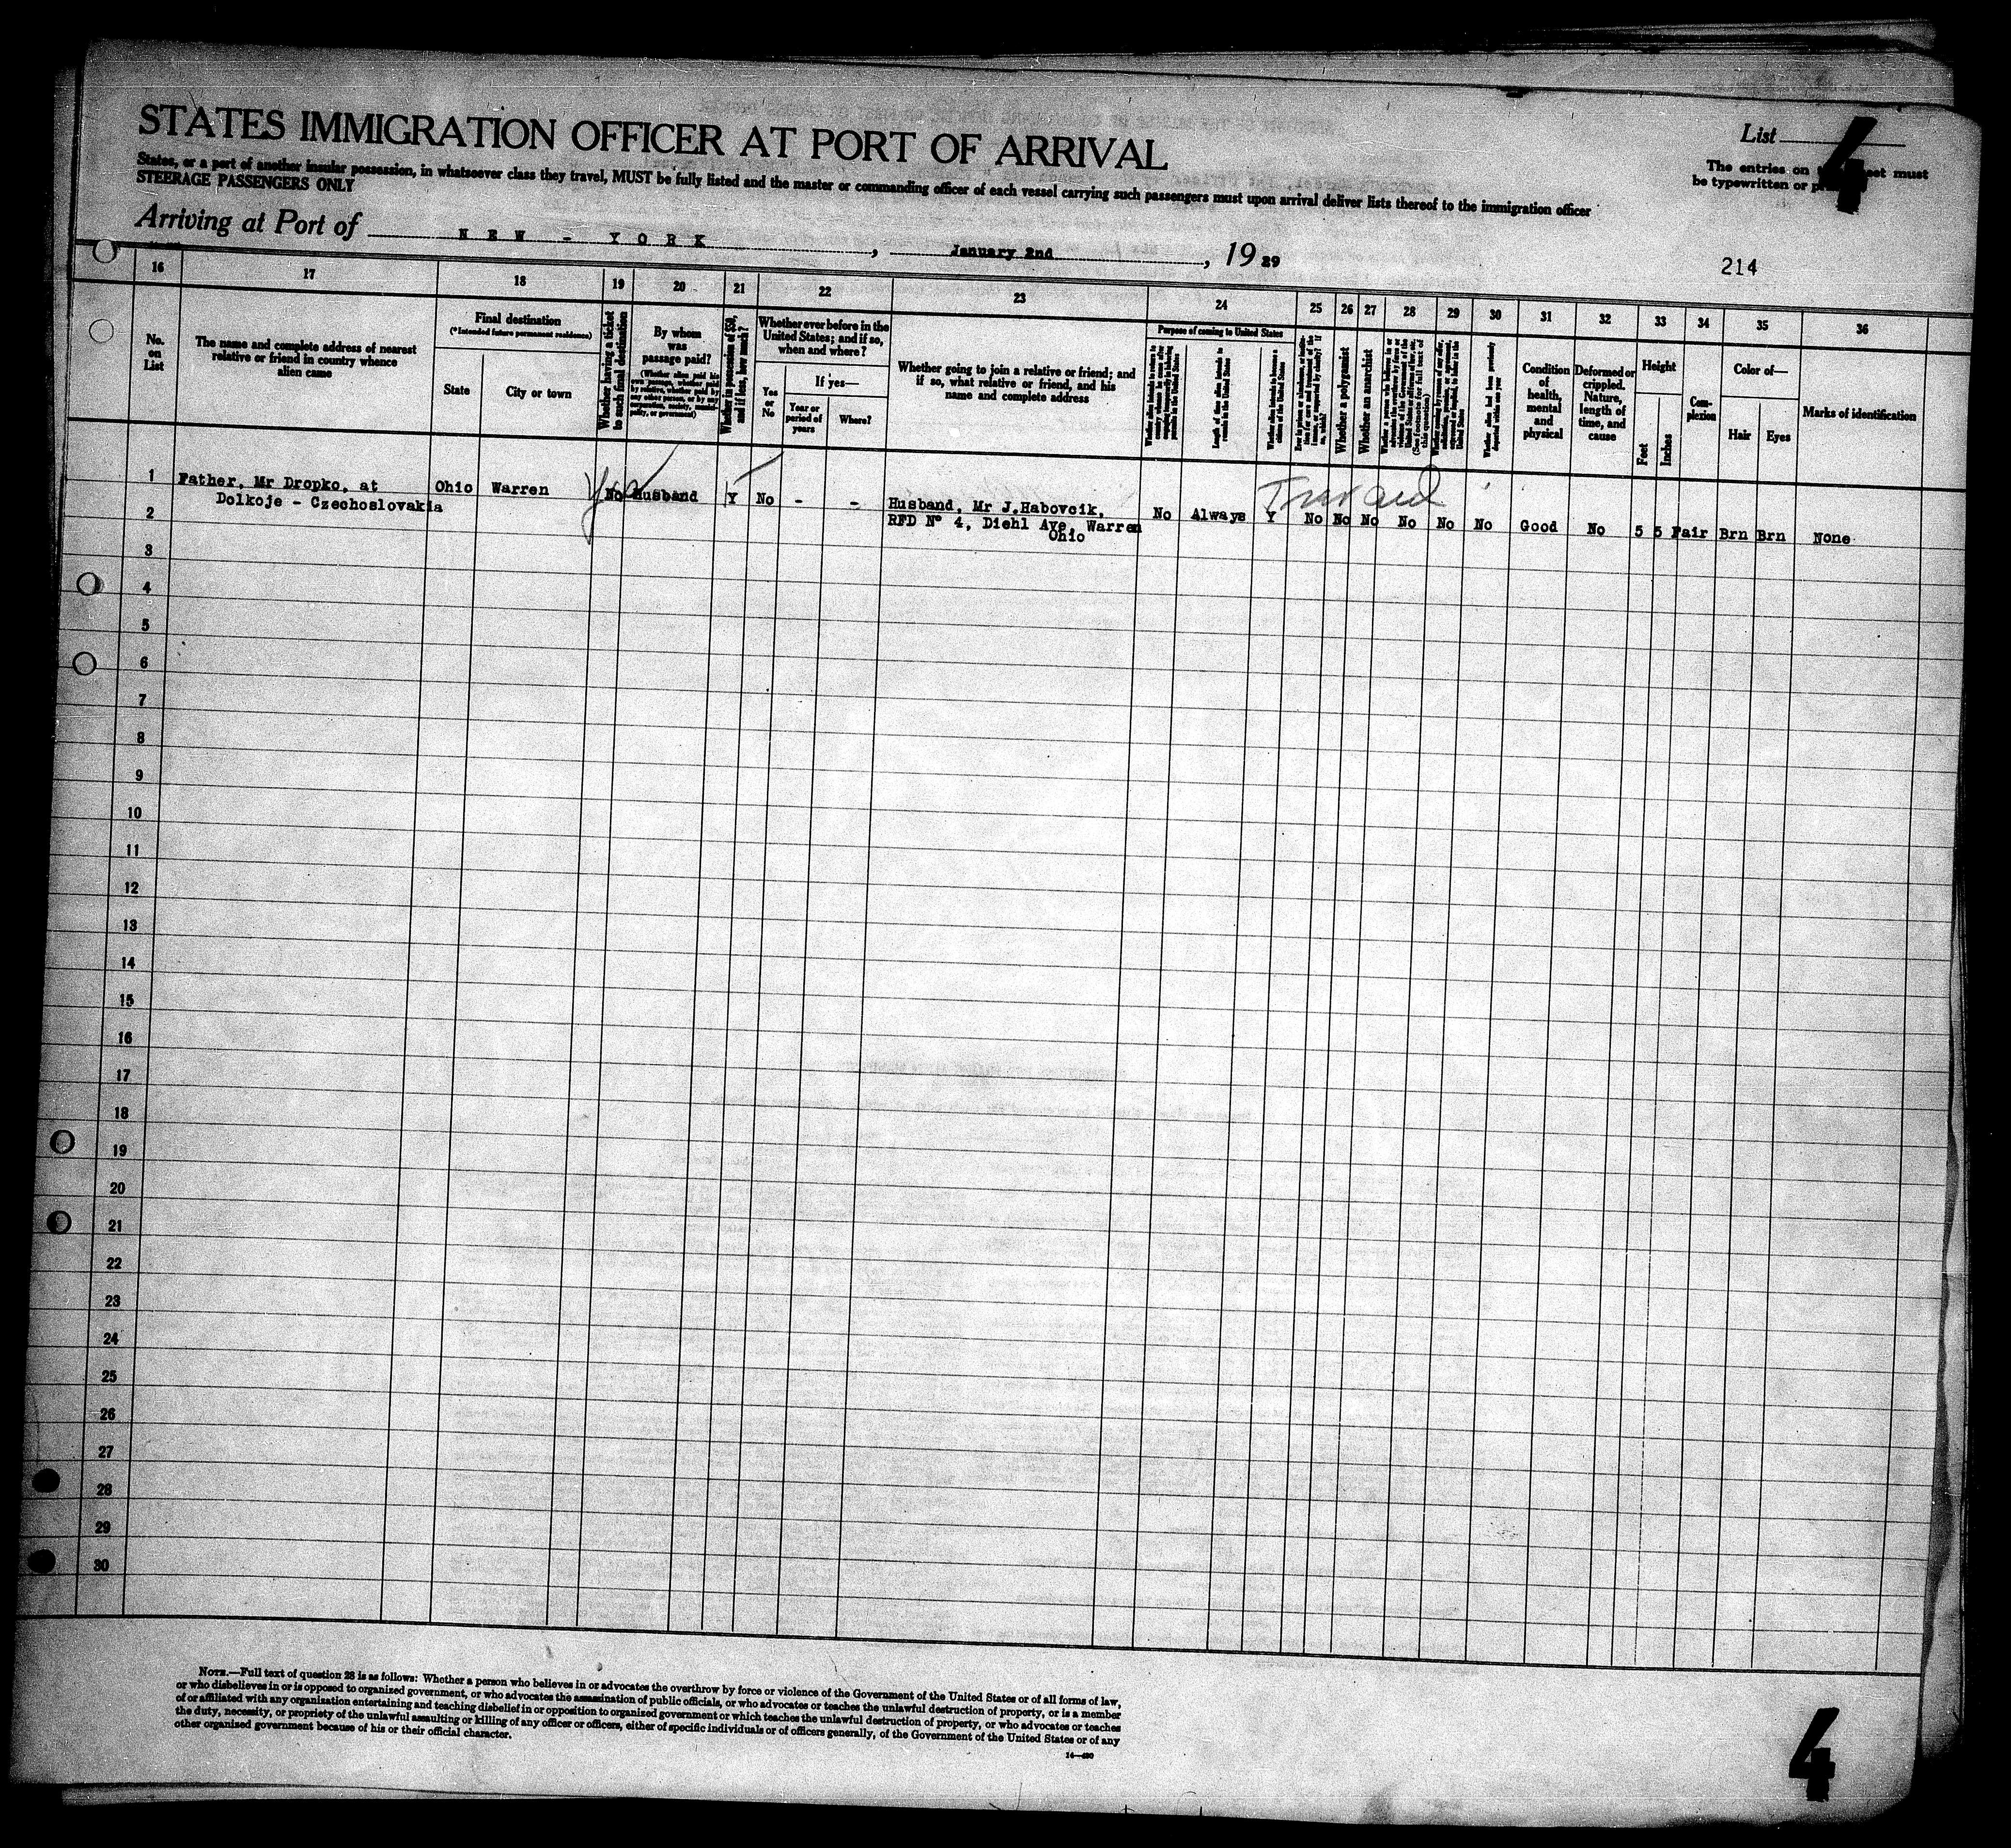 STATES IMMIGRATION OFFICER AT PORT OF ARRIVAL
List
4
The entries on sheet must
be typewritten or
States, or a port of another insular possession, in whatsoever class they travel, MUST be fully listed and the master or commanding officer of each vessel carrying such passengers must upon arrival deliver lists thereof to the immigration officer
STEERAGE PASSENGERS ONLY
Arriving at Port of NEW - YORK, January 2nd, 1929
214
16 17 18 19 20 21 22 23 24 25 26 27 28 29 30 31 32 33 34 35 36
No. on List
The name and complete address of nearest relative or friend in country whence alien came
Final destination
(*Intended future permanent residence)
State
City or town
Whether having a ticket to such final destination
By whom was passage paid?
(Whether alien paid his own passage, whether paid by relative, whether paid by any other person, or by any corporation, society, municipality, or government)
Whether in possession of $50, and if less, how much?
Whether ever before in the United States; and if so, when and where?
Yes or No
If yes—
Year or period of years
Where?
Whether going to join a relative or friend; and if so, what relative or friend, and his name and complete address
Purpose of coming to United States
Length of time alien intends to remain in the United States
Whether alien intends to become a citizen of the United States
Whether a polygamist
Whether an anarchist
Condition of health, mental and physical
Deformed or crippled. Nature, length of time, and cause
Height
Feet
Inches
Com-plexion
Color of—
Hair
Eyes
Marks of identification
1 Father, Mr Dropko, at Ohio Warren Yes No Husband Y No - -
Dolkoje - Czechoslovakia
Husband, Mr J.Habovcik, No Always Y No No No No No No Good No 5 5 Fair Brn Brn None
RFD Nº 4, Diehl Ave, Warren
Ohio
2
3
4
5
6
7
8
9
10
11
12
13
14
15
16
17
18
19
20
21
22
23
24
25
26
27
28
29
30
NOTE.—Full text of question 28 is as follows: Whether a person who believes in or advocates the overthrow by force or violence of the Government of the United States or of all forms of law,
or who disbelieves in or is opposed to organized government, or who advocates the assassination of public officials, or who advocates or teaches the unlawful destruction of property, or is a member
of or affiliated with any organization entertaining and teaching disbelief in or opposition to organized government or which teaches the unlawful destruction of property, or who advocates or teaches
the duty, necessity, or propriety of the unlawful assaulting or killing of any officer or officers, either of specific individuals or of officers generally, of the Government of the United States or of any
other organized government because of his or their official character.
14—480
4